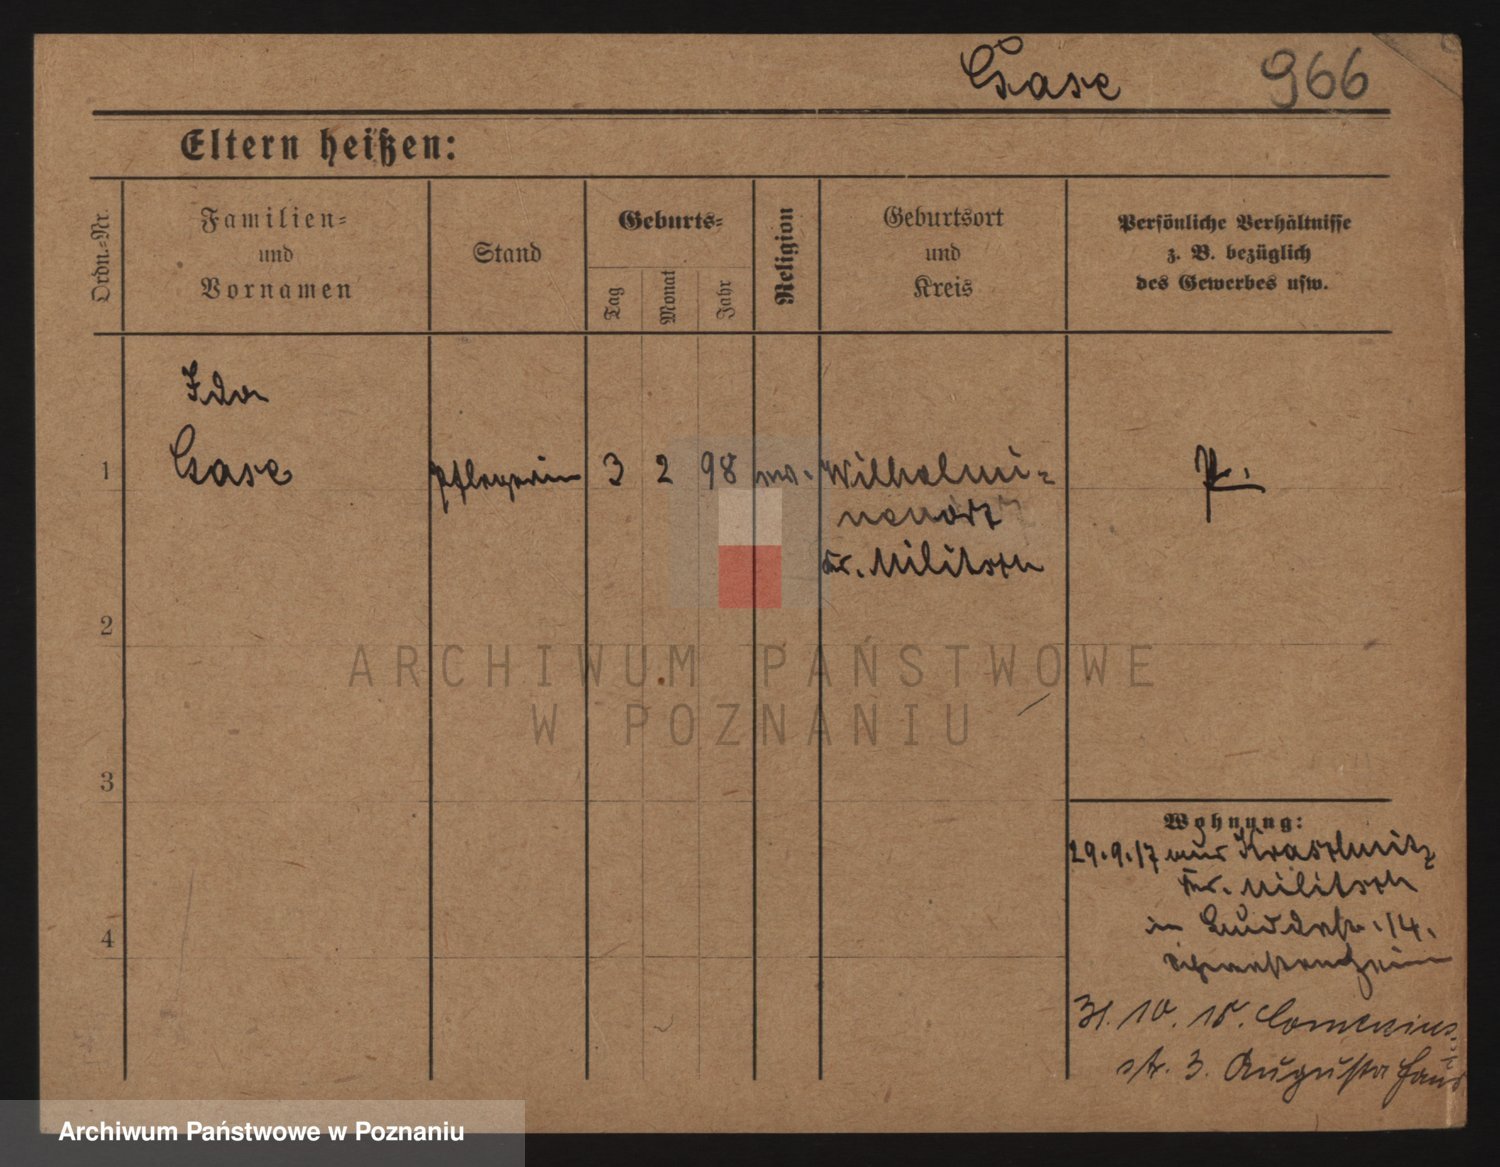 Gase 966
Eltern heißen:
Ordn.-Nr.
Familien-
und
Vornamen
Stand
Geburts-
Tag
Monat
Jahr
Religion
Geburtsort
und
Kreis
Persönliche Verhältnisse
z. B. bezüglich
des Gewerbes usw.
Ida
1 Gase Pflegerin 3 2 98 Wilhelmi-
nenort
Kr. Militsch
2
3
4
ARCHIWUM PAŃSTWOWE
W POZNANIU
Wohnung:
29.9.17 aus Kraschnitz
Kr. Militsch
in 14.
Schwesternheim
31. 10. 18. Comenius
str. 3. Augusta Haus
Archiwum Państwowe w Poznaniu